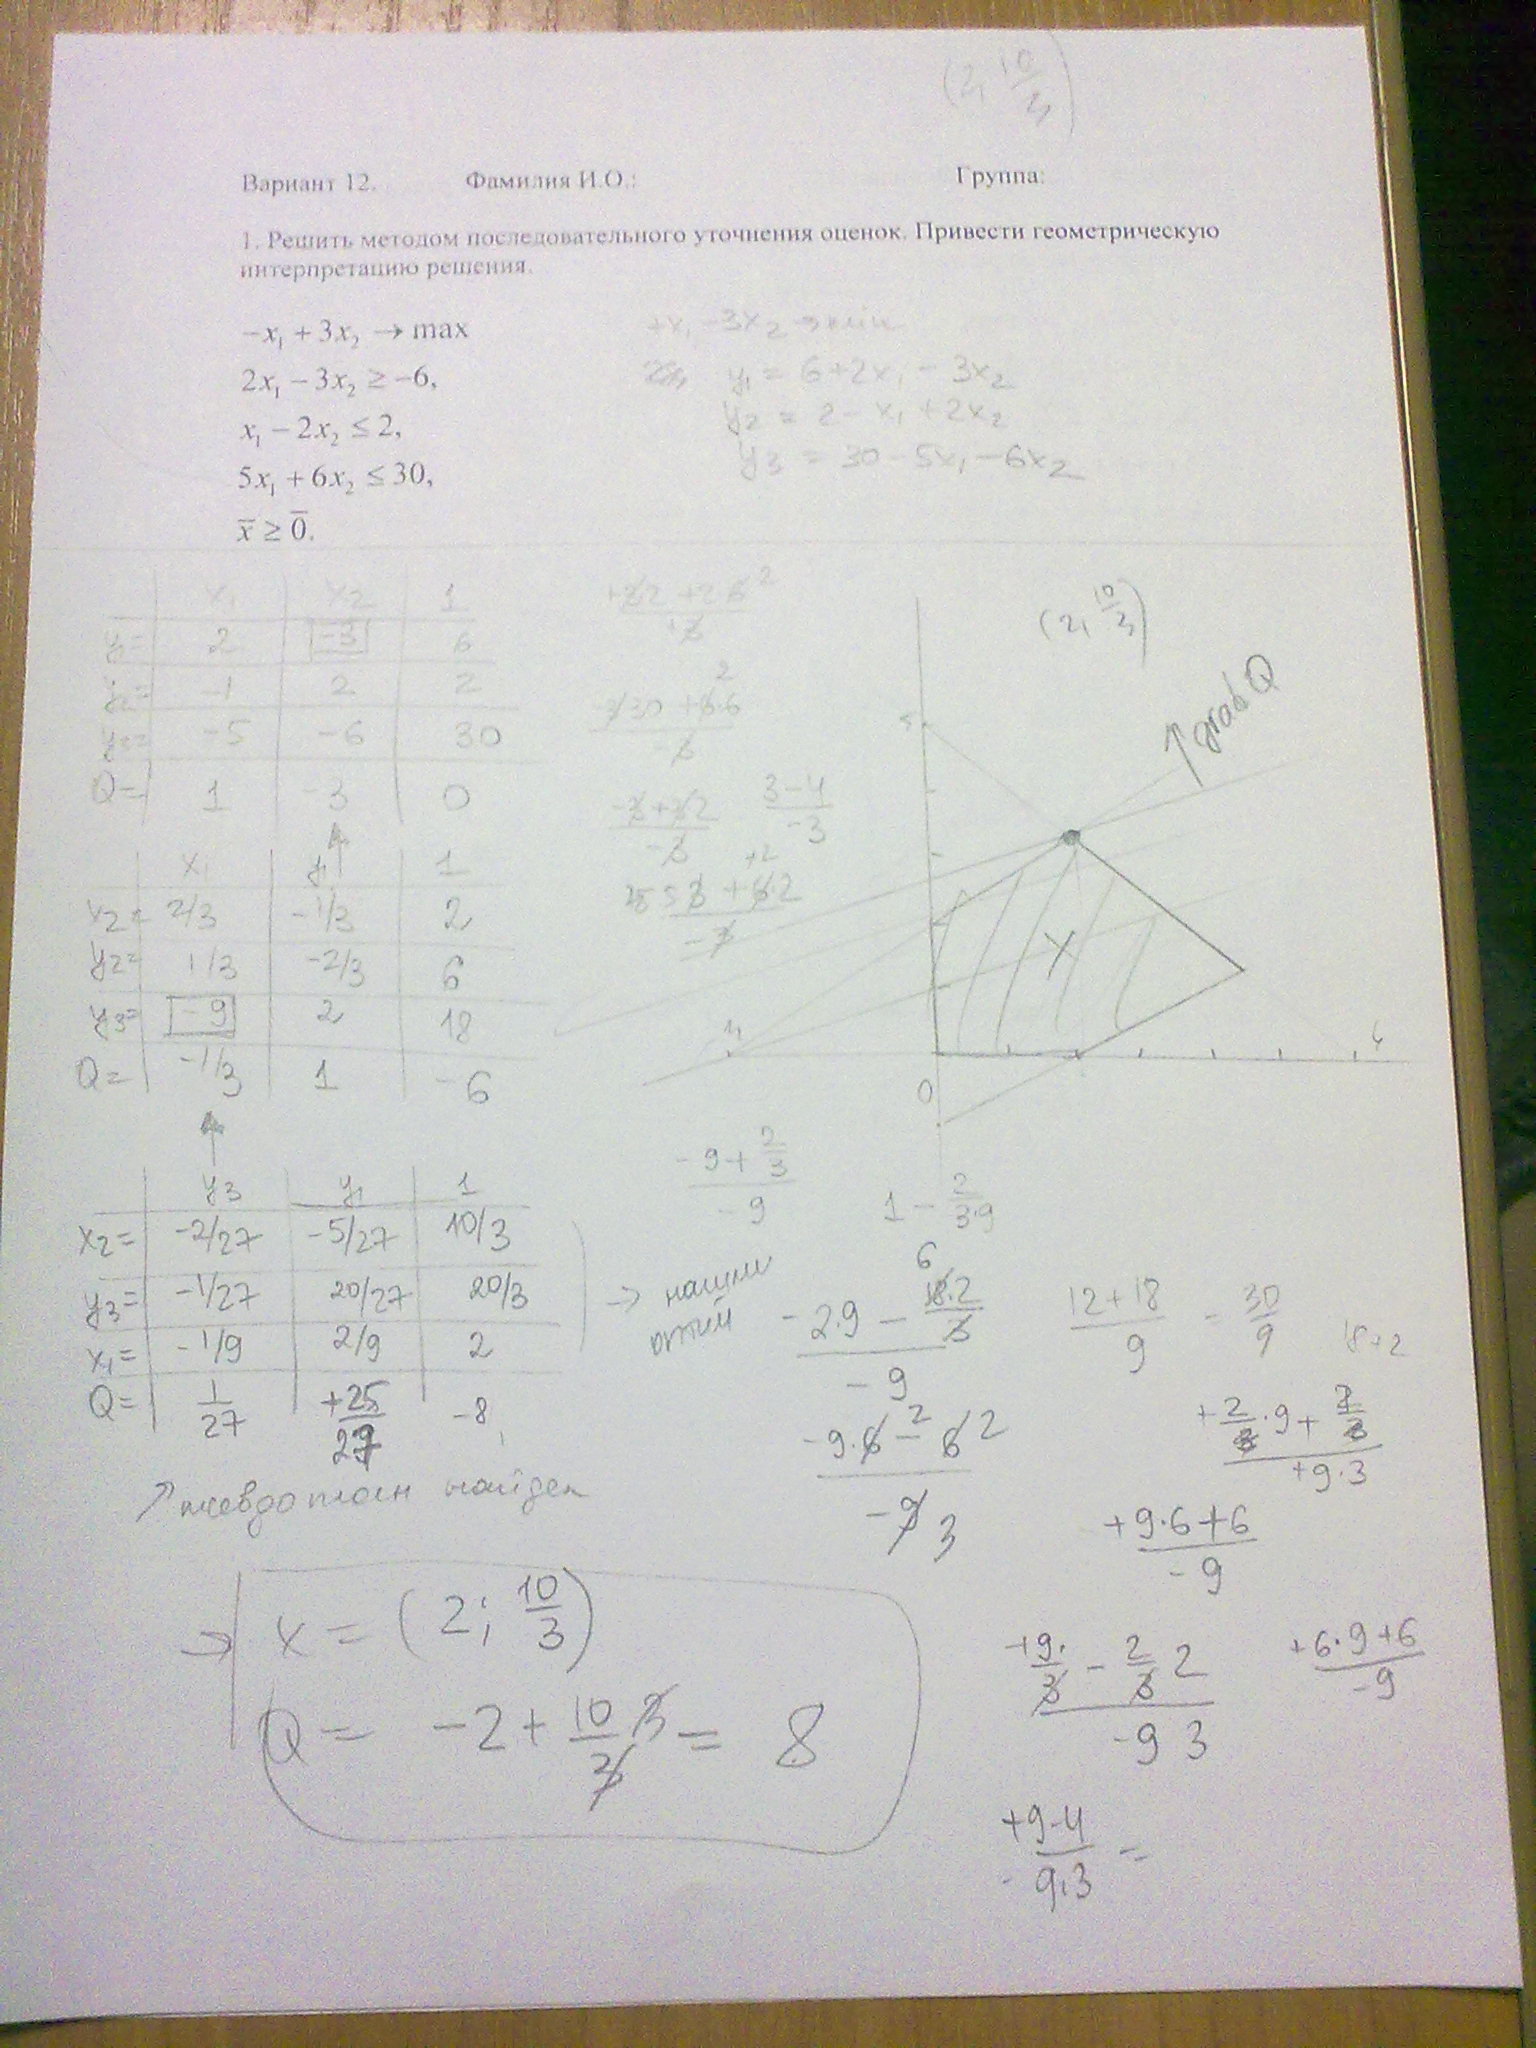 (2, 10/3)
Вариант 12. Фамилия И.О.: Группа:
1. Решить методом последовательного уточнения оценок. Привести геометрическую
интерпретацию решения.
−x₁ + 3x₂ → max
2x₁ − 3x₂ ≥ −6,
x₁ − 2x₂ ≤ 2,
5x₁ + 6x₂ ≤ 30,
x̄ ≥ 0̄.
+x₁ − 3x₂ → min
y₁ = 6 + 2x₁ − 3x₂
y₂ = 2 − x₁ + 2x₂
y₃ = 30 − 5x₁ − 6x₂
x₁ x₂ 1
y₁= 2 −3 6
y₂= −1 2 2
y₃= −5 −6 30
Q= 1 −3 0
x₁ y₁ 1
x₂= 2/3 −1/3 2
y₂= 1/3 −2/3 6
y₃= −9 2 18
Q= −1/3 1 −6
y₃ y₁ 1
x₂= −2/27 −5/27 10/3
y₃= −1/27 20/27 20/3
x₁= −1/9 2/9 2
Q= 1/27 +25/27 −8
↗ псевдоплан найден
→ x = (2; 10/3)
Q = −2 + 10/3 3 = 8
(3−4)/−3
(2, 10/3)
↑ grad Q
X
0
(−9 + 2/3)/−9
1 − 2/(3·9)
→ нашли
(−2·9 − 18·2/3)/−9
6
(12+18)/9 = 30/9
18+2
(−9·6 − 6 2)/−9 3
(+9·6+6)/−9
(+9·/3 − 2/3 2)/−9 3
(+6·9+6)/−9
(+9−4)/9·3 =